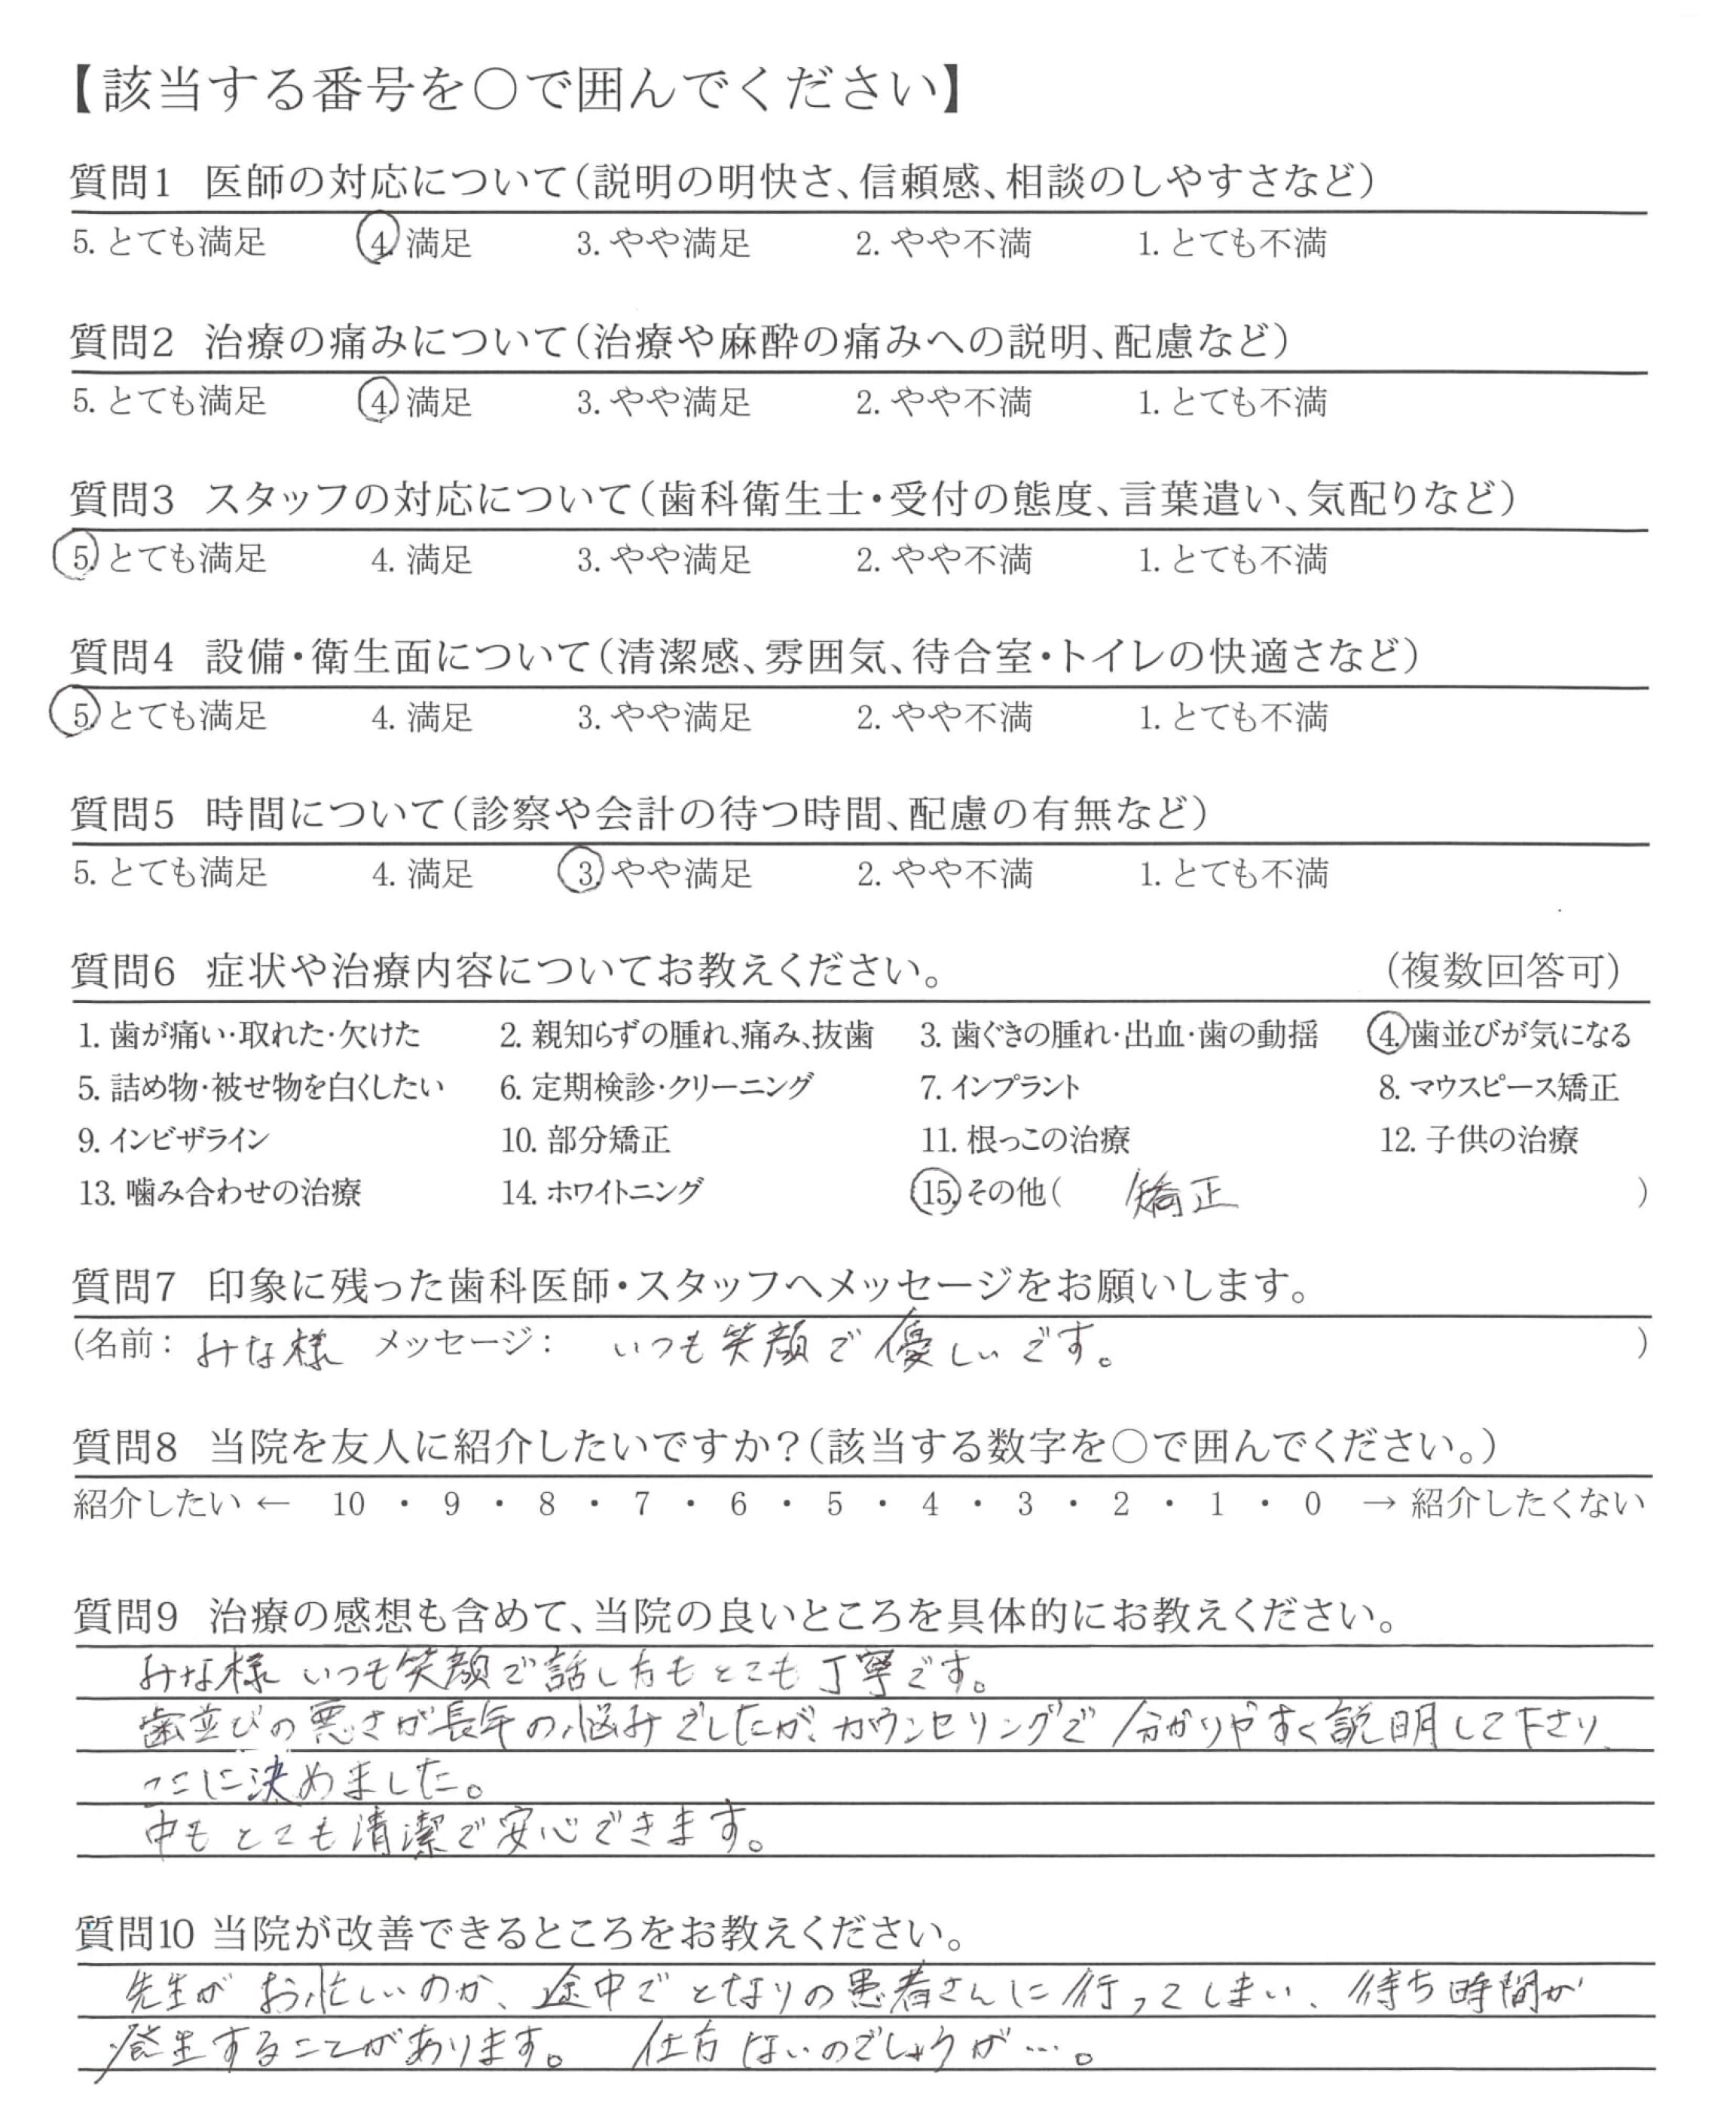 【該当する番号を○で囲んでください】
質問1 医師の対応について(説明の明快さ、信頼感、相談のしやすさなど)
5. とても満足 4. 満足 3. やや満足 2. やや不満 1. とても不満
質問2 治療の痛みについて(治療や麻酔の痛みへの説明、配慮など)
5. とても満足 4. 満足 3. やや満足 2. やや不満 1. とても不満
質問3 スタッフの対応について(歯科衛生士・受付の態度、言葉遣い、気配りなど)
5. とても満足 4. 満足 3. やや満足 2. やや不満 1. とても不満
質問4 設備・衛生面について(清潔感、雰囲気、待合室・トイレの快適さなど)
5. とても満足 4. 満足 3. やや満足 2. やや不満 1. とても不満
質問5 時間について(診察や会計の待つ時間、配慮の有無など)
5. とても満足 4. 満足 3. やや満足 2. やや不満 1. とても不満
質問6 症状や治療内容についてお教えください。 (複数回答可)
1. 歯が痛い・取れた・欠けた 2. 親知らずの腫れ、痛み、抜歯 3. 歯ぐきの腫れ・出血・歯の動揺 4. 歯並びが気になる
5. 詰め物・被せ物を白くしたい 6. 定期検診・クリーニング 7. インプラント 8. マウスピース矯正
9. インビザライン 10. 部分矯正 11. 根っこの治療 12. 子供の治療
13. 噛み合わせの治療 14. ホワイトニング 15. その他( 矯正 )
質問7 印象に残った歯科医師・スタッフへメッセージをお願いします。
(名前: みな様 メッセージ: いつも笑顔で優しいです。 )
質問8 当院を友人に紹介したいですか?(該当する数字を○で囲んでください。)
紹介したい ← 10 ・ 9 ・ 8 ・ 7 ・ 6 ・ 5 ・ 4 ・ 3 ・ 2 ・ 1 ・ 0 → 紹介したくない
質問9 治療の感想も含めて、当院の良いところを具体的にお教えください。
みな様 いつも笑顔で話し方もとても丁寧です。
歯並びの悪さが長年の悩みでしたが、カウンセリングで分かりやすく説明して下さり、
ここに決めました。
中もとても清潔で安心できます。
質問10 当院が改善できるところをお教えください。
先生がお忙しいのか、途中でとなりの患者さんに行ってしまい、待ち時間が
発生することがあります。 仕方ないのでしょうが…。